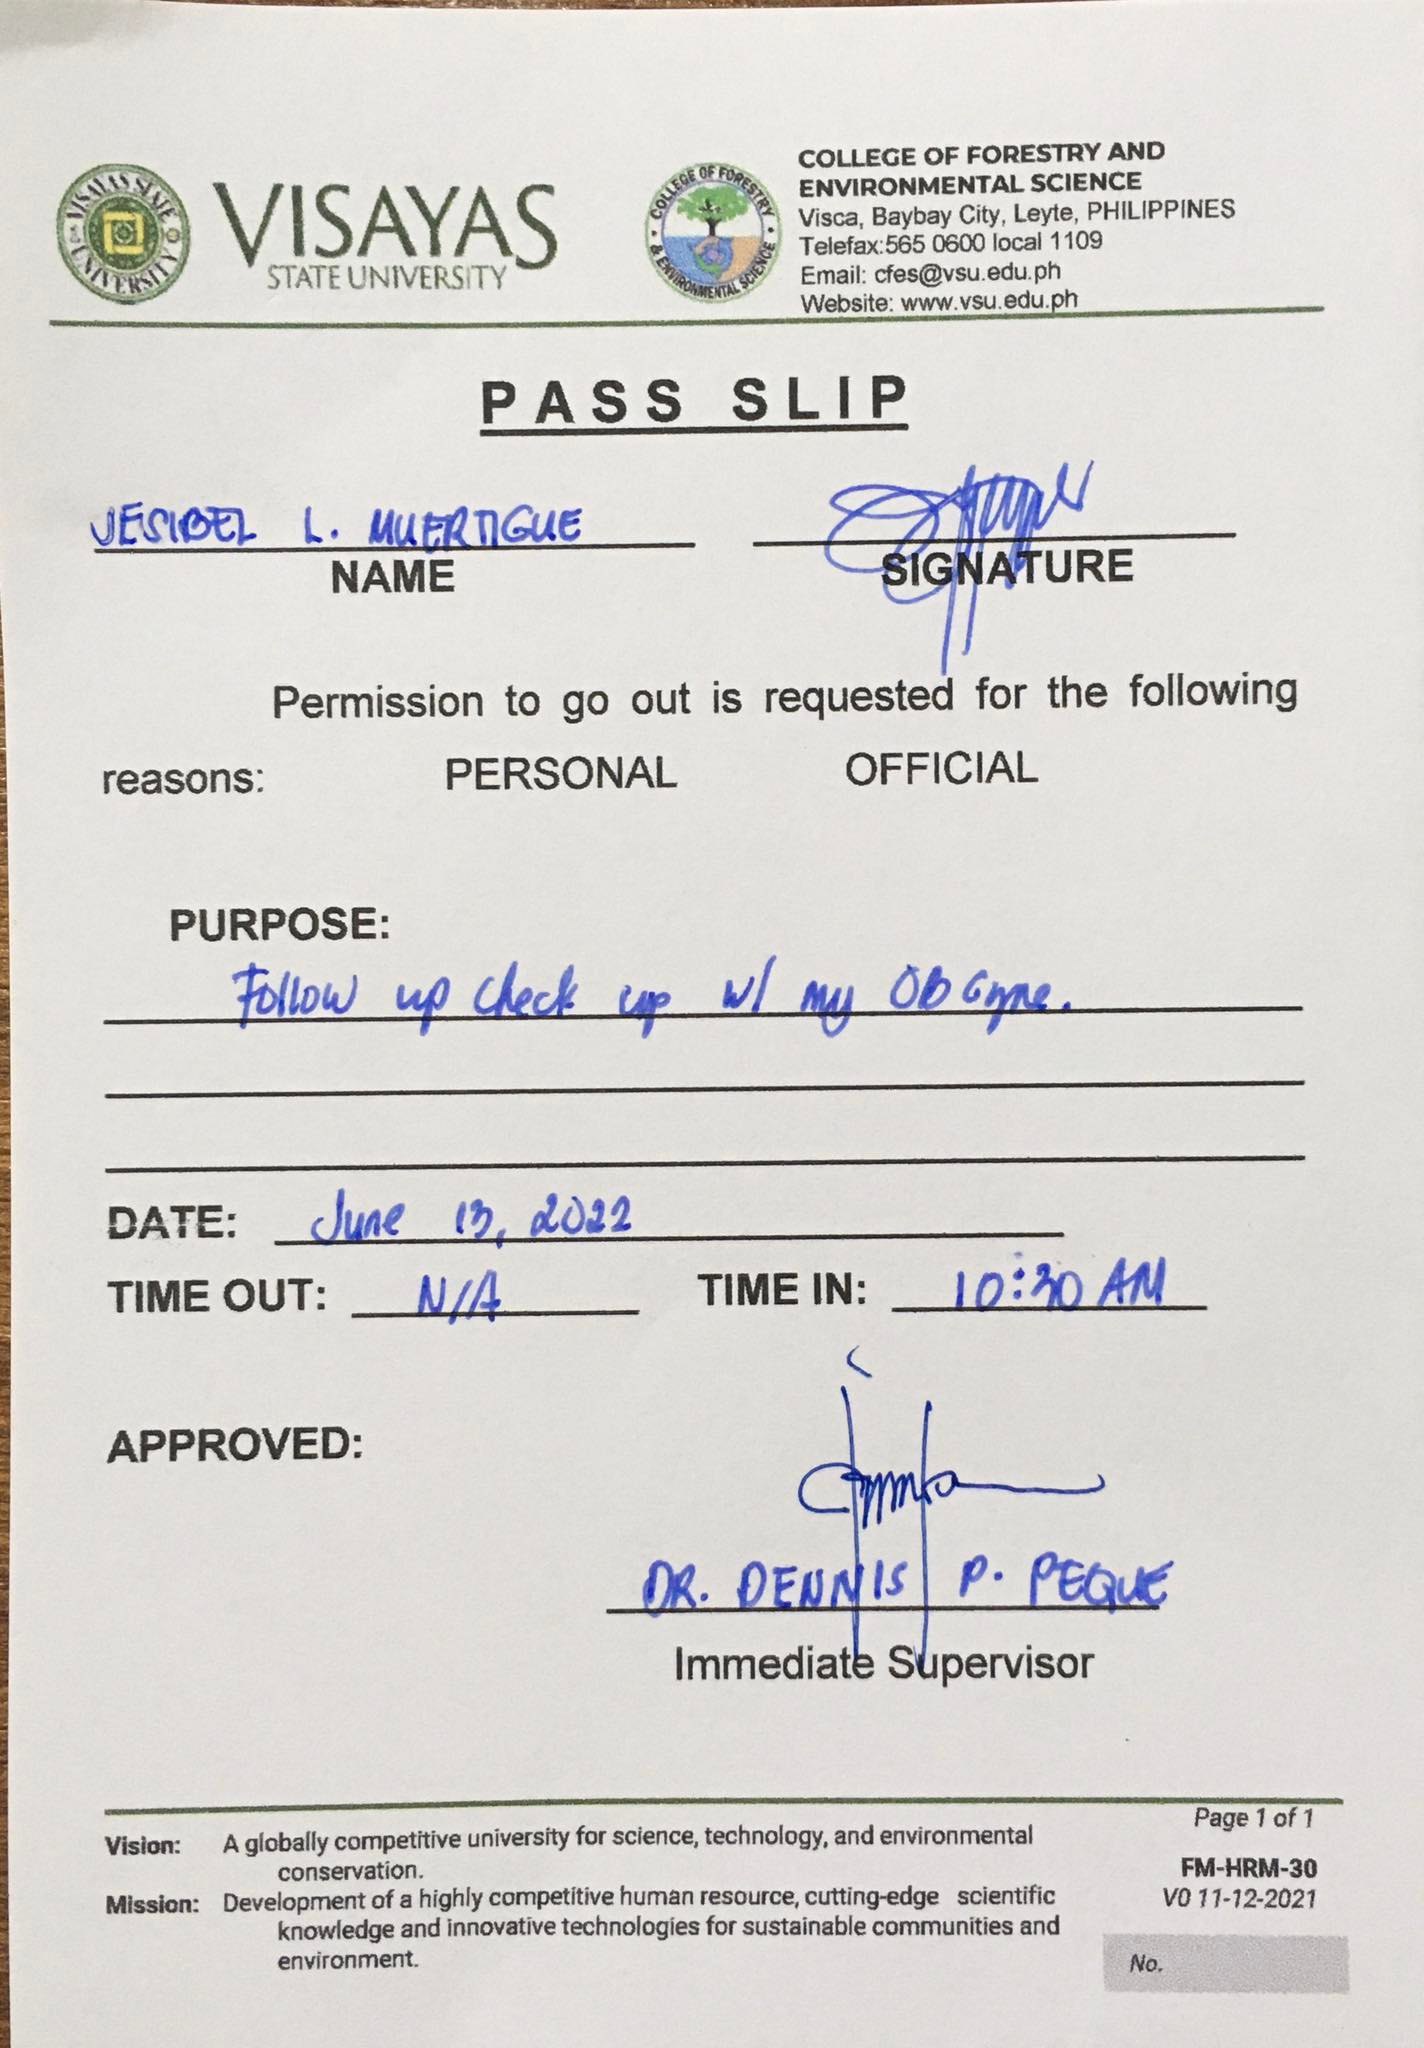 VISAYAS STATE UNIVERSITY
VISAYAS
STATE UNIVERSITY
COLLEGE OF FORESTRY
& ENVIRONMENTAL SCIENCE
COLLEGE OF FORESTRY AND
ENVIRONMENTAL SCIENCE
Visca, Baybay City, Leyte, PHILIPPINES
Telefax:565 0600 local 1109
Email: cfes@vsu.edu.ph
Website: www.vsu.edu.ph
PASS SLIP
JESIBEL L. MUERTIGUE
NAME SIGNATURE
Permission to go out is requested for the following
reasons: PERSONAL OFFICIAL
PURPOSE:
Follow up check up w/ my OB Gyne.
DATE: June 13, 2022
TIME OUT: N/A TIME IN: 10:30 AM
APPROVED:
DR. DENNIS P. PEQUE
Immediate Supervisor
Page 1 of 1
Vision: A globally competitive university for science, technology, and environmental
conservation.
FM-HRM-30
Mission: Development of a highly competitive human resource, cutting-edge scientific
V0 11-12-2021
knowledge and innovative technologies for sustainable communities and
environment.
No.